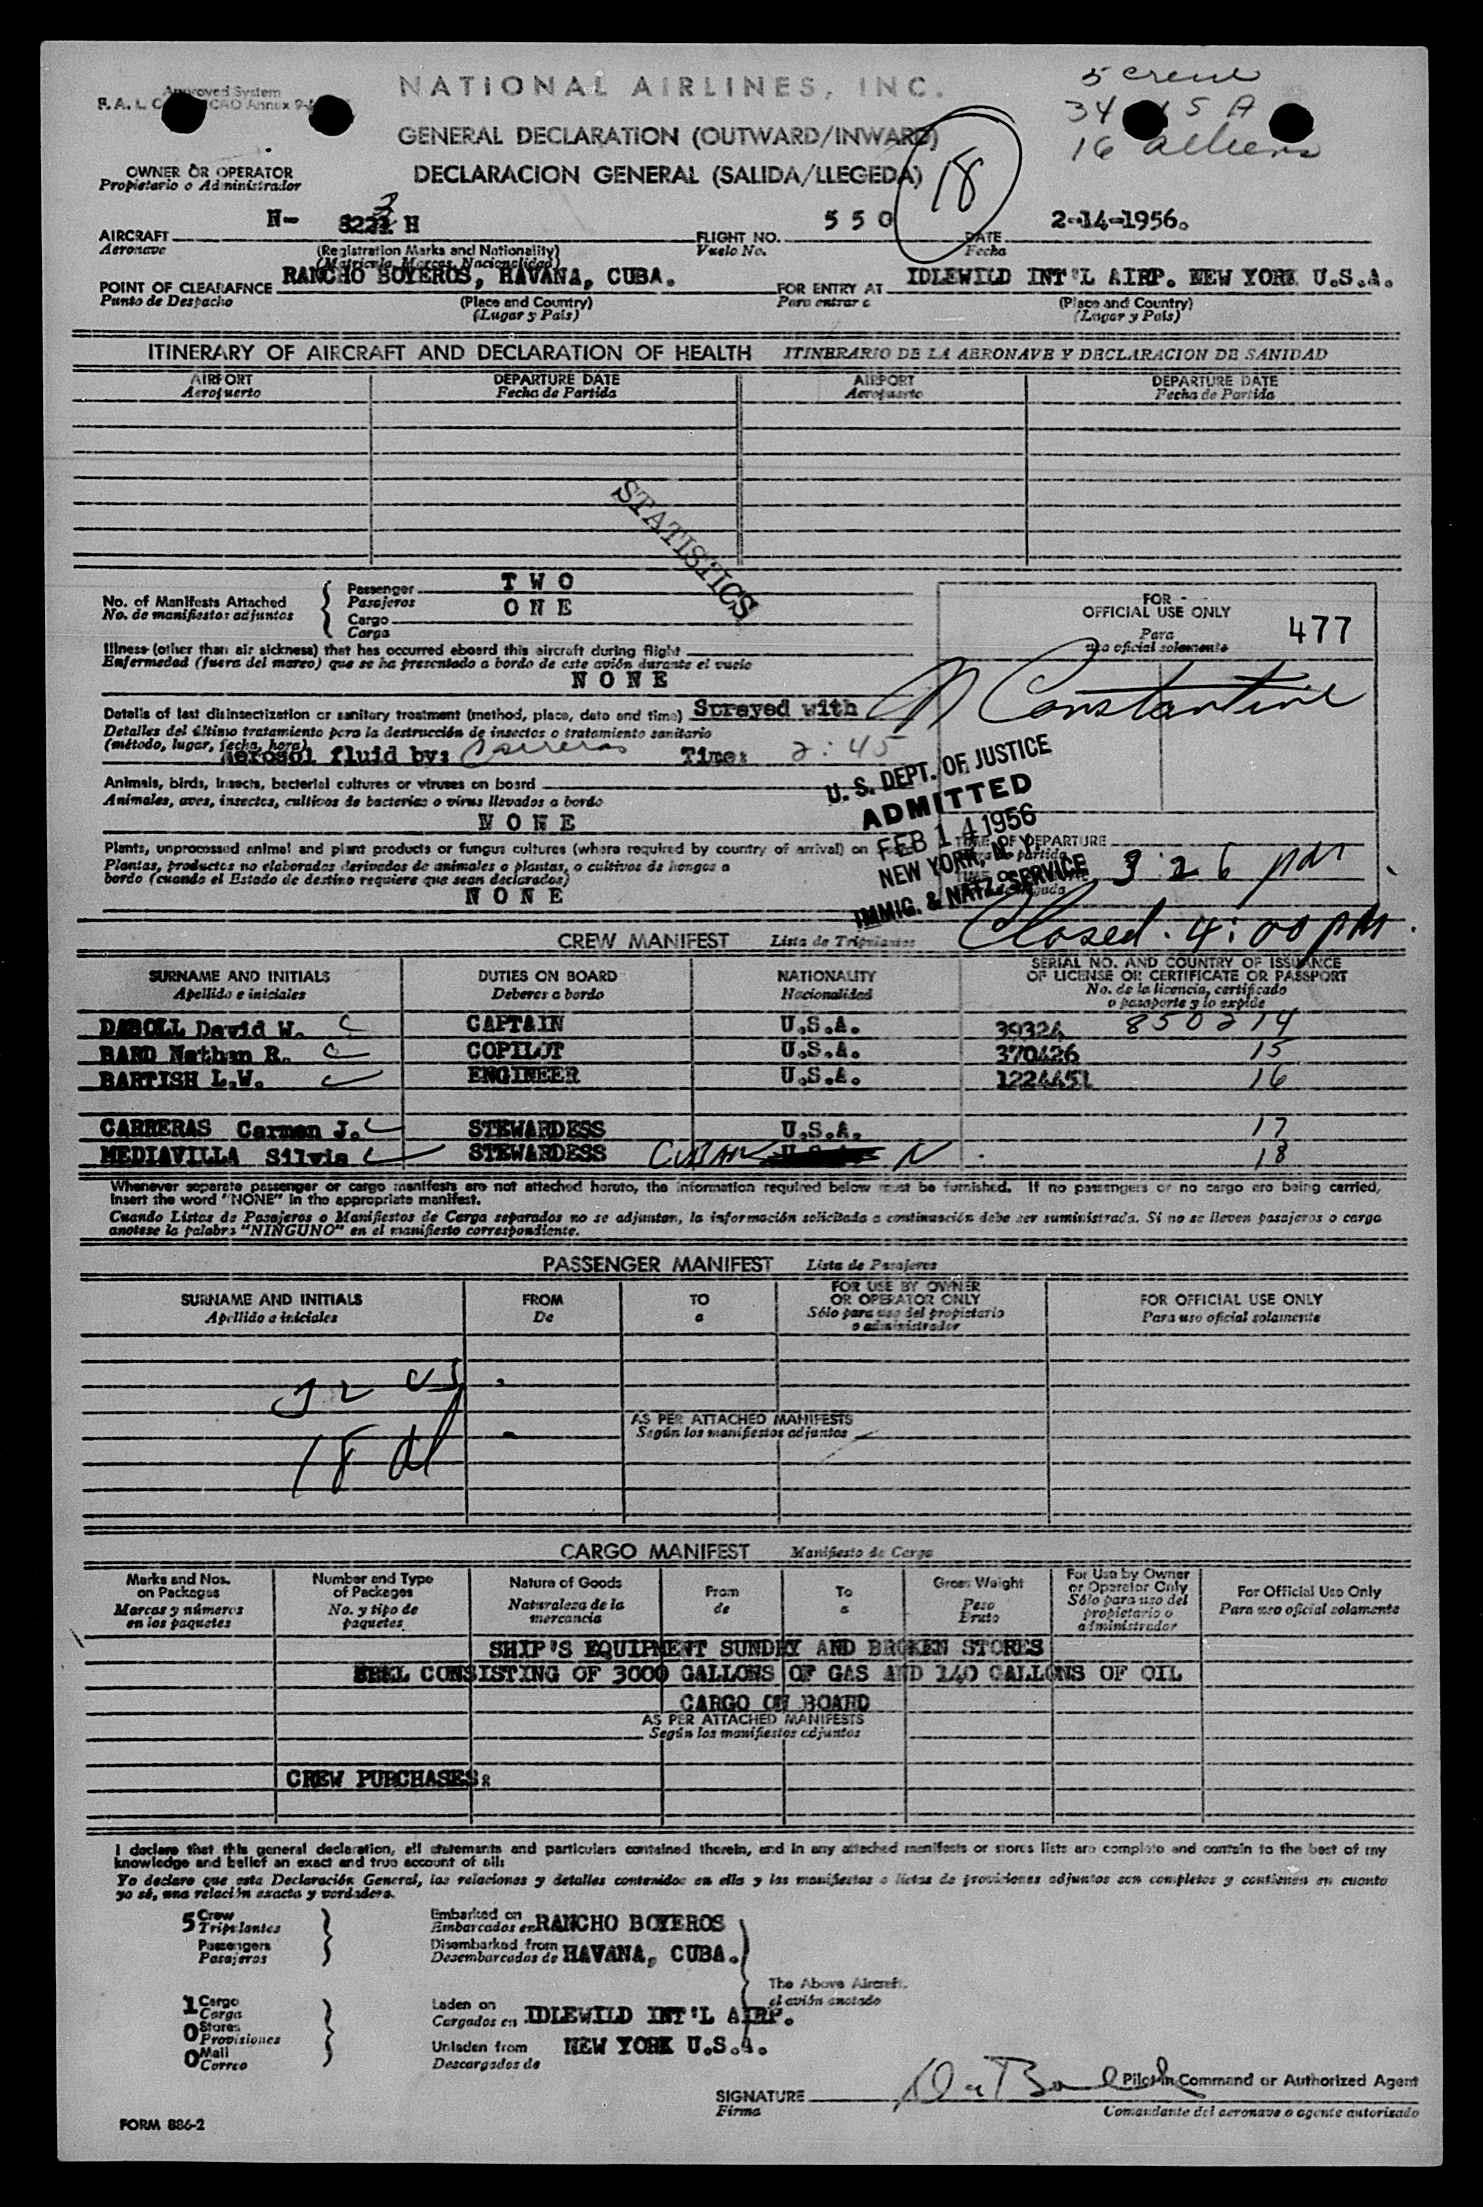 Approved System
NATIONAL AIRLINES, INC.
5 crew
34 U S A
16 aliens
GENERAL DECLARATION (OUTWARD/INWARD)
18
OWNER OR OPERATOR
Propietario o Administrador
DECLARACION GENERAL (SALIDA/LLEGEDA)
N- H
5 5 0
2-14-1956.
AIRCRAFT
Aeronave
(Registration Marks and Nationality)
(Matricula, Marcas, Nacionalidad)
FLIGHT NO.
Vuelo No.
DATE
Fecha
POINT OF CLEARAFNCE RANCHO BOYEROS, HAVANA, CUBA.
Punto de Despacho
(Place and Country)
(Lugar y Pais)
FOR ENTRY AT IDLEWILD INT'L AIRP. NEW YORK U.S.A.
Para entrar a
(Place and Country)
(Lugar y Pais)
ITINERARY OF AIRCRAFT AND DECLARATION OF HEALTH ITINERARIO DE LA AERONAVE Y DECLARACION DE SANIDAD
AIRPORT DEPARTURE DATE AIRPORT DEPARTURE DATE
Aeropuerto Fecha de Partida Aeropuerto Fecha de Partida
STATISTICS
No. of Manifests Attached
No. de manifiestos adjuntos
Passenger T W O
Pasajeros
Cargo O N E
Carga
FOR
OFFICIAL USE ONLY
Para
uso oficial solamente
477
Illness (other than air sickness) that has occurred aboard this aircraft during flight
Enfermedad (fuera del mareo) que se ha presentado a bordo de este avión durante el vuelo
N O N E
Constantine
Details of last disinsectization or sanitary treatment (method, place, date and time) Sprayed with
Detalles del último tratamiento para la destrucción de insectos o tratamiento sanitario
(método, lugar, fecha, hora)
Aerosol fluid by: Carreras Time: 2:45
Animals, birds, insects, bacterial cultures or viruses on board
Animales, aves, insectos, cultivos de bacterias o virus llevados a bordo
N O N E
U. S. DEPT. OF JUSTICE
ADMITTED
FEB 14 1956
NEW YORK, N. Y.
IMMIG. & NATZ. SERVICE
Plants, unprocessed animal and plant products or fungus cultures (where required by country of arrival) on
Plantas, productos no elaborados derivados de animales o plantas, o cultivos de hongos a
bordo (cuando el Estado de destino requiere que sean declarados)
N O N E
TIME OF DEPARTURE
3:26 pm
Closed. 4:00 pm.
CREW MANIFEST Lista de Tripulantes
SURNAME AND INITIALS DUTIES ON BOARD NATIONALITY SERIAL NO. AND COUNTRY OF ISSUANCE
OF LICENSE OR CERTIFICATE OR PASSPORT
Apellido e iniciales Deberes a bordo Nacionalidad No. de la licencia, certificado
o pasaporte y lo expide
DABOLL David W. CAPTAIN U.S.A. 39324 850214
BARD Nathan R. COPILOT U.S.A. 370426 15
BARTISH L.W. ENGINEER U.S.A. 1224451 16
CARRERAS Carmen J. STEWARDESS U.S.A. 17
MEDIAVILLA Silvia STEWARDESS CUBAN U.S.A. N 18
Whenever separate passenger or cargo manifests are not attached hereto, the information required below must be furnished. If no passengers or no cargo are being carried,
insert the word "NONE" in the appropriate manifest.
Cuando Listas de Pasajeros o Manifiestos de Carga separados no se adjuntan, la información solicitada a continuación debe ser suministrada. Si no se lleven pasajeros o carga
anotese la palabra "NINGUNO" en el manifiesto correspondiente.
PASSENGER MANIFEST Lista de Pasajeros
SURNAME AND INITIALS FROM TO FOR USE BY OWNER
OR OPERATOR ONLY FOR OFFICIAL USE ONLY
Apellido e iniciales De a Sólo para uso del propietario
o administrador Para uso oficial solamente
32 US
AS PER ATTACHED MANIFESTS
Según los manifiestos adjuntos
18 al
CARGO MANIFEST Manifiesto de Carga
Marks and Nos.
on Packages
Marcas y números
en los paquetes
Number and Type
of Packages
No. y tipo de
paquetes
Nature of Goods
Naturaleza de la
mercancia
From
de
To
a
Gross Weight
Peso
Bruto
For Use by Owner
or Operator Only
Sólo para uso del
propietario o
administrador
For Official Use Only
Para uso oficial solamente
SHIP'S EQUIPMENT SUNDRY AND BROKEN STORES
CONSISTING OF 3000 GALLONS OF GAS AND 140 GALLONS OF OIL
CARGO ON BOARD
AS PER ATTACHED MANIFESTS
Según los manifiestos adjuntos
CREW PURCHASES:
I declare that this general declaration, all statements and particulars contained therein, and in any attached manifests or stores lists are complete and contain to the best of my
knowledge and belief an exact and true account of all:
Yo declaro que esta Declaración General, las relaciones y detalles contenidos en ella y los manifiestos o listas de provisiones adjuntos son completos y contienen en cuanto
yo sé, una relación exacta y verdadera.
5 Crew
Tripulantes
Passengers
Pasajeros
Embarked on
Embarcados en RANCHO BOYEROS
Disembarked from
Desembarcados de HAVANA, CUBA.
The Above Aircraft.
el avión anotado
1 Cargo
Carga
0 Stores
Provisiones
0 Mail
Correo
Laden on
Cargados en IDLEWILD INT'L AIRP.
Unladen from NEW YORK U.S.A.
Descargados de
SIGNATURE
Firma
Pilot in Command or Authorized Agent
Comandante del aeronave o agente autorizado
FORM 886-2